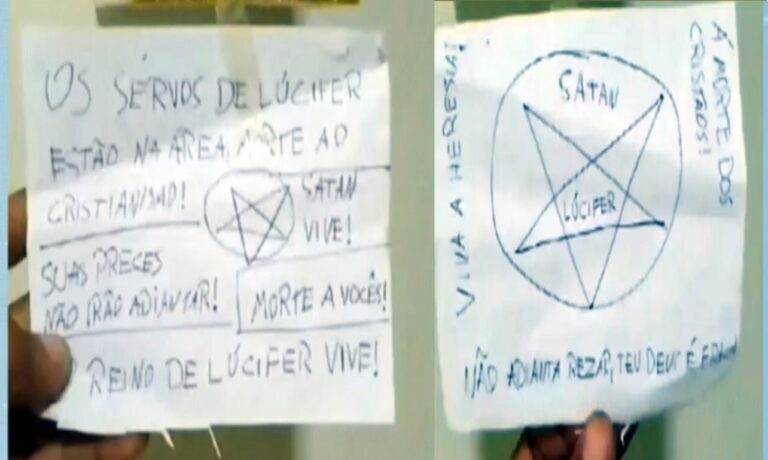 OS SERVOS DE LÚCIFER
ESTÃO NA ÁREA, MORTE AO
CRISTIANISMO!
SATAN
VIVE!
SUAS PRECES
NÃO IRÃO ADIANTAR!
MORTE A VOCÊS!
REINO DE LÚCIFER VIVE!
VIVA A HERESIA!
SATAN
LÚCIFER
Á MORTE DOS
CRISTÃOS!
NÃO ADIANTA REZAR, TEU DEUS É